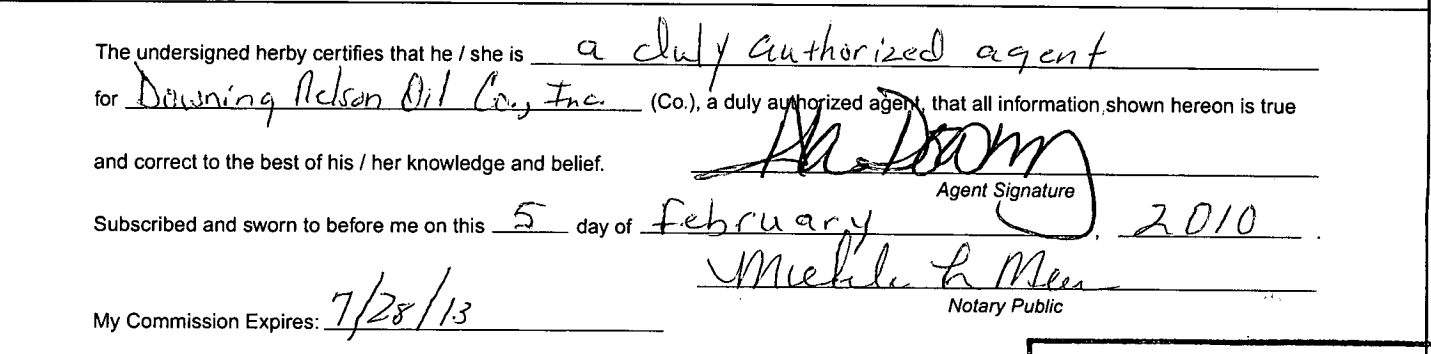 The undersigned herby certifies that he / she is a duly authorized agent
for Downing Nelson Oil Co., Inc. (Co.), a duly authorized agent, that all information shown hereon is true
and correct to the best of his / her knowledge and belief.
Agent Signature
Subscribed and sworn to before me on this 5 day of February, 2010.
Notary Public
My Commission Expires: 7/28/13